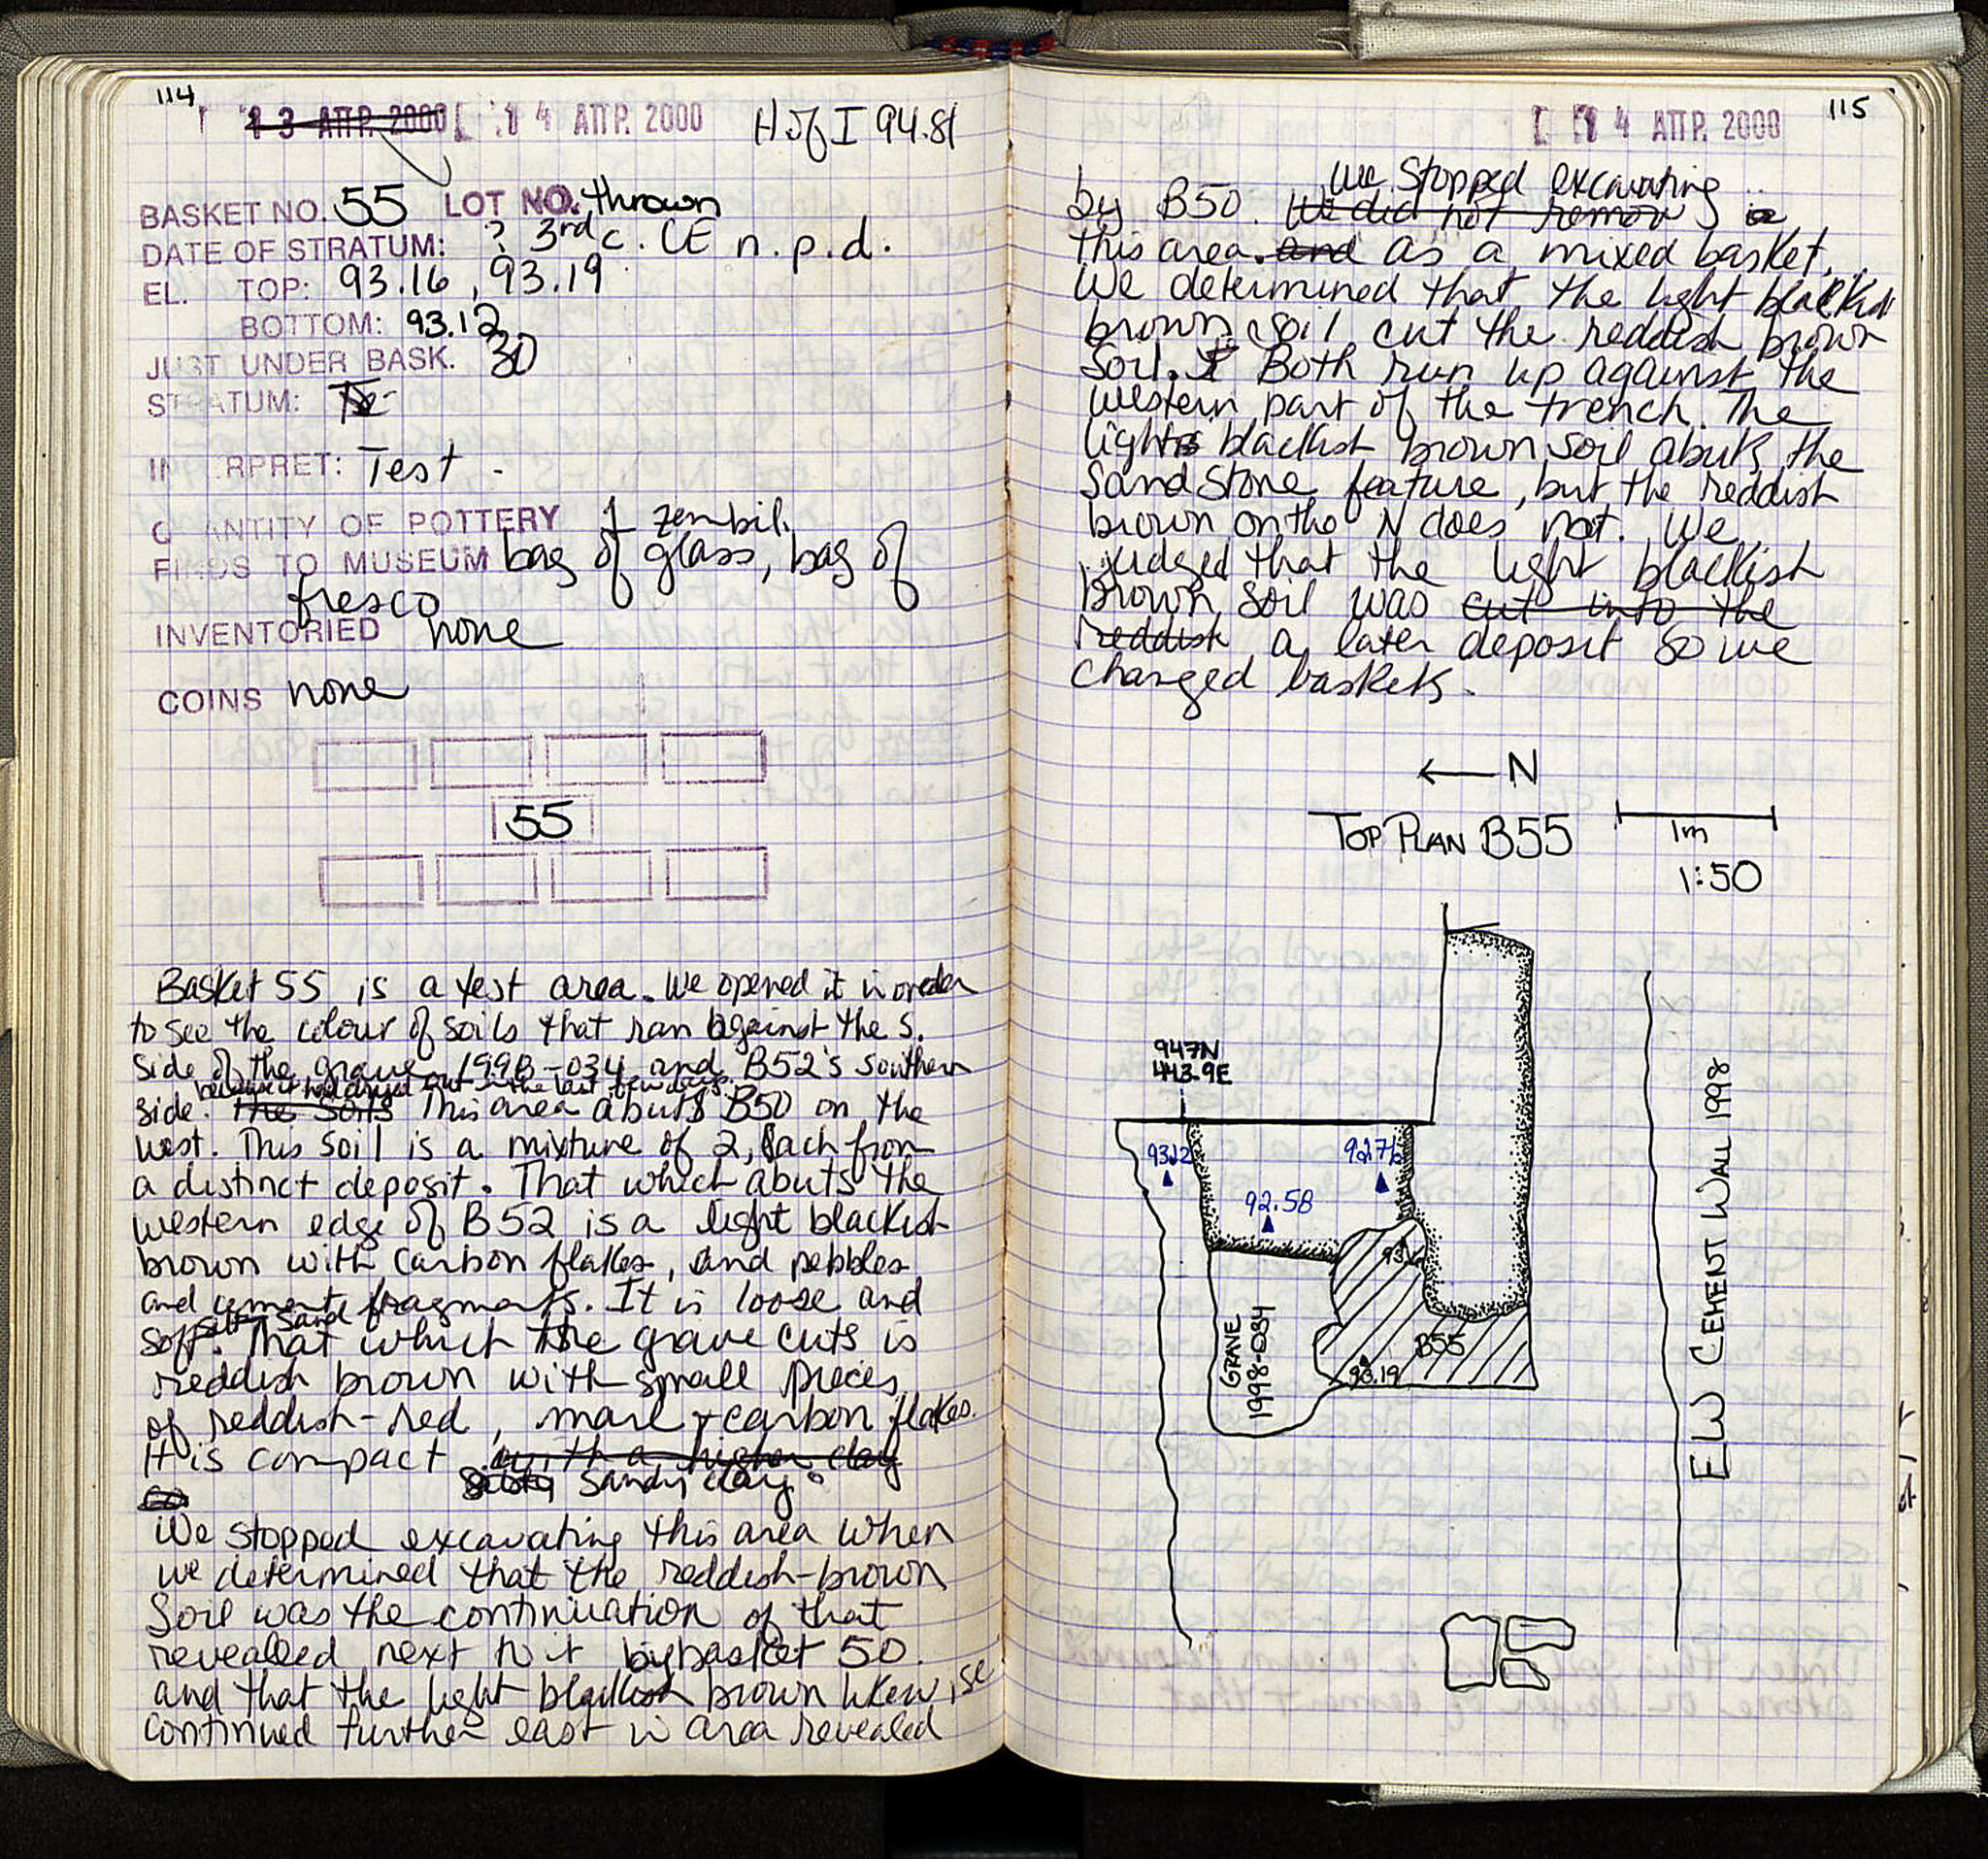 114
13 ΑΠΡ. 2000 14 ΑΠΡ. 2000 H of I 94.81
BASKET NO. 55 LOT NO. thrown
DATE OF STRATUM: ? 3rd c. CE n.p.d.
EL. TOP: 93.16, 93.19
BOTTOM: 93.12
JUST UNDER BASK. 30
STRATUM:
INTERPRET: Test -
QUANTITY OF POTTERY 1 zembil.
FINDS TO MUSEUM bag of glass, bag of
fresco
INVENTORIED none
COINS none
55
Basket 55 is a test area. We opened it in order
to see the colour of soils that ran against the S.
side of the grave 1998-034 and B52's southern
because it had dryed out in the last few days.
side. The soils This area abutts B50 on the
west. This soil is a mixture of 2, each from
a distinct deposit. That which abuts the
western edge of B52 is a light blackish
brown with carbon flakes, and pebbles
and cement fragments. It is loose and
silty sand
soft. That which the grave cuts is
reddish brown with small pieces
of reddish-red, marl + carbon flakes.
It is compact with a higher clay
sandy clay.
We stopped excavating this area when
we determined that the reddish-brown
soil was the continuation of that
revealed next to it by basket 50.
and that the light blackish brown likewise
continued further east in area revealed
115
14 ΑΠΡ. 2000
we stopped excavating
by B50. We did not remov
this area. and as a mixed basket.
We determined that the light blackish
brown soil cut the reddish brown
soil. Both run up against the
western part of the trench. The
light blackish brown soil abuts the
sandstone feature, but the reddish
brown on the N does not. We
judged that the light blackish
brown soil was cut into the
reddish a later deposit so we
changed baskets.
← N
TOP PLAN B55
1m
1:50
947N
443.9E
93.12
92.76
92.58
B55
93.19
GRAVE
1998-034
E/W CEMENT WALL 1998